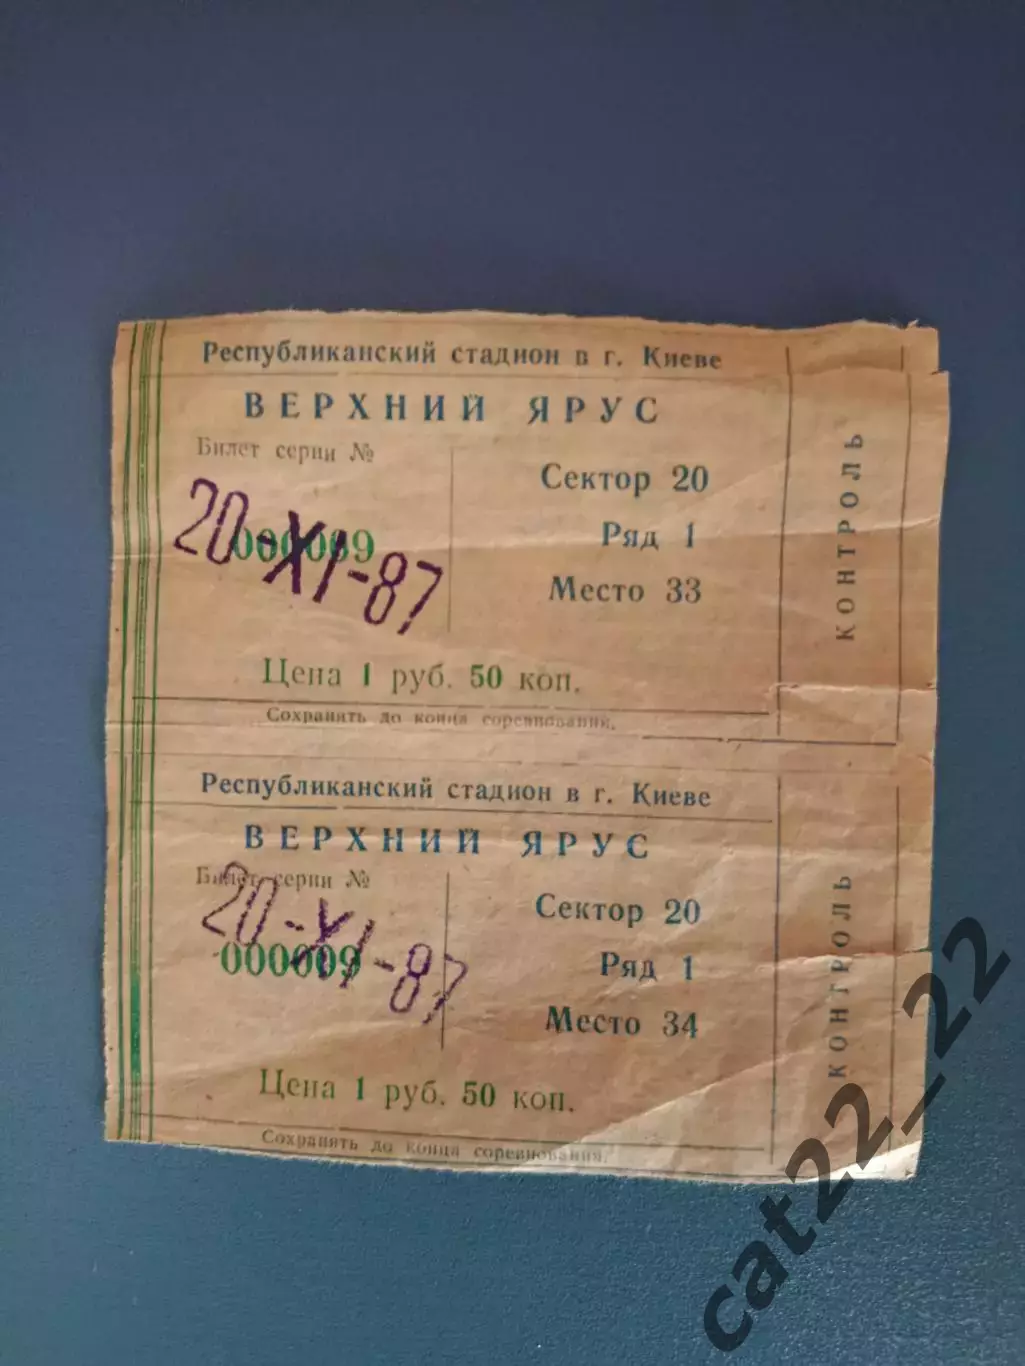 Республиканский стадион в г. Киеве
ВЕРХНИЙ ЯРУС
Билет серии №
000009
20-XI-87
Сектор 20
Ряд 1
Место 33
Цена 1 руб. 50 коп.
Сохранять до конца соревнований.
КОНТРОЛЬ
Республиканский стадион в г. Киеве
ВЕРХНИЙ ЯРУС
Билет серии №
000009
20-XI-87
Сектор 20
Ряд 1
Место 34
Цена 1 руб. 50 коп.
Сохранять до конца соревнования.
КОНТРОЛЬ
cat22_22